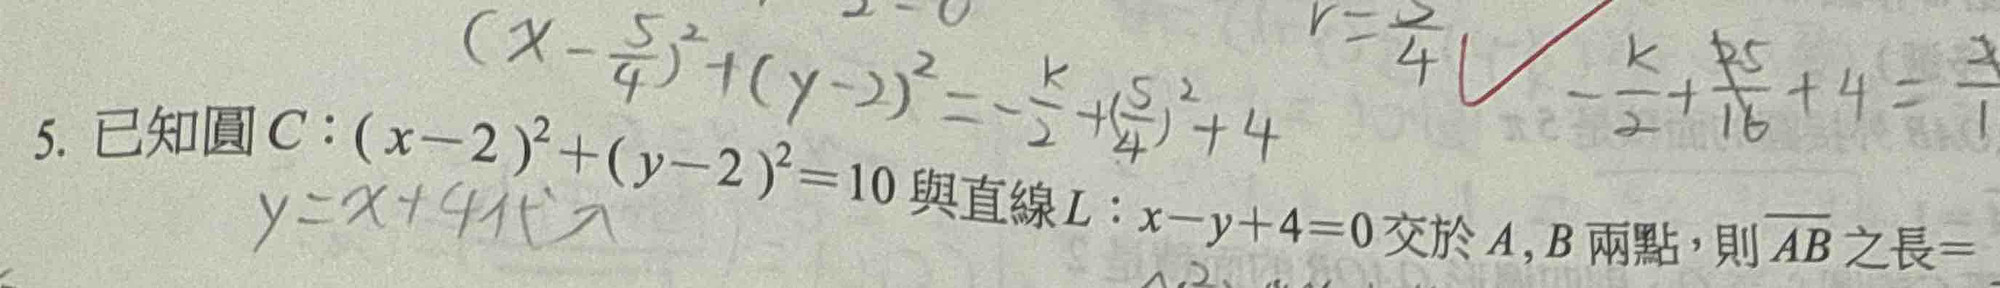 r=
(x-5/4)²+(y-2)²=-k/2+(5/4)²+4
-k/2+25/16+4=
5. 已知圓C：(x-2)²+(y-2)²=10與直線L：x-y+4=0交於A, B兩點，則AB之長=
y=x+4代入